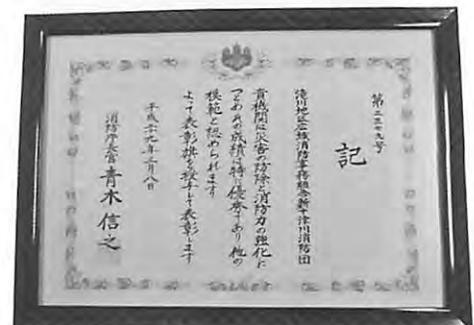 第二三七九号
記
滝川地区広域消防事務組合新十津川消防団
貴機関は災害の防除と消防力の強化に
つとめその成績は特に優秀であり他の
模範と認められます
よって表彰旗を授与して表彰します
平成二十九年三月八日
消防庁長官 青木信之